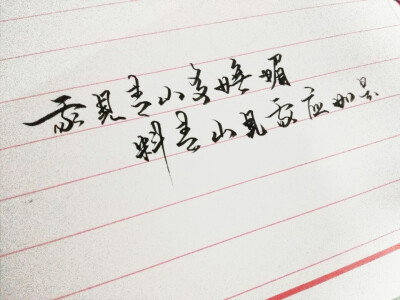 我見青山多嫵媚
料青山見我应如是